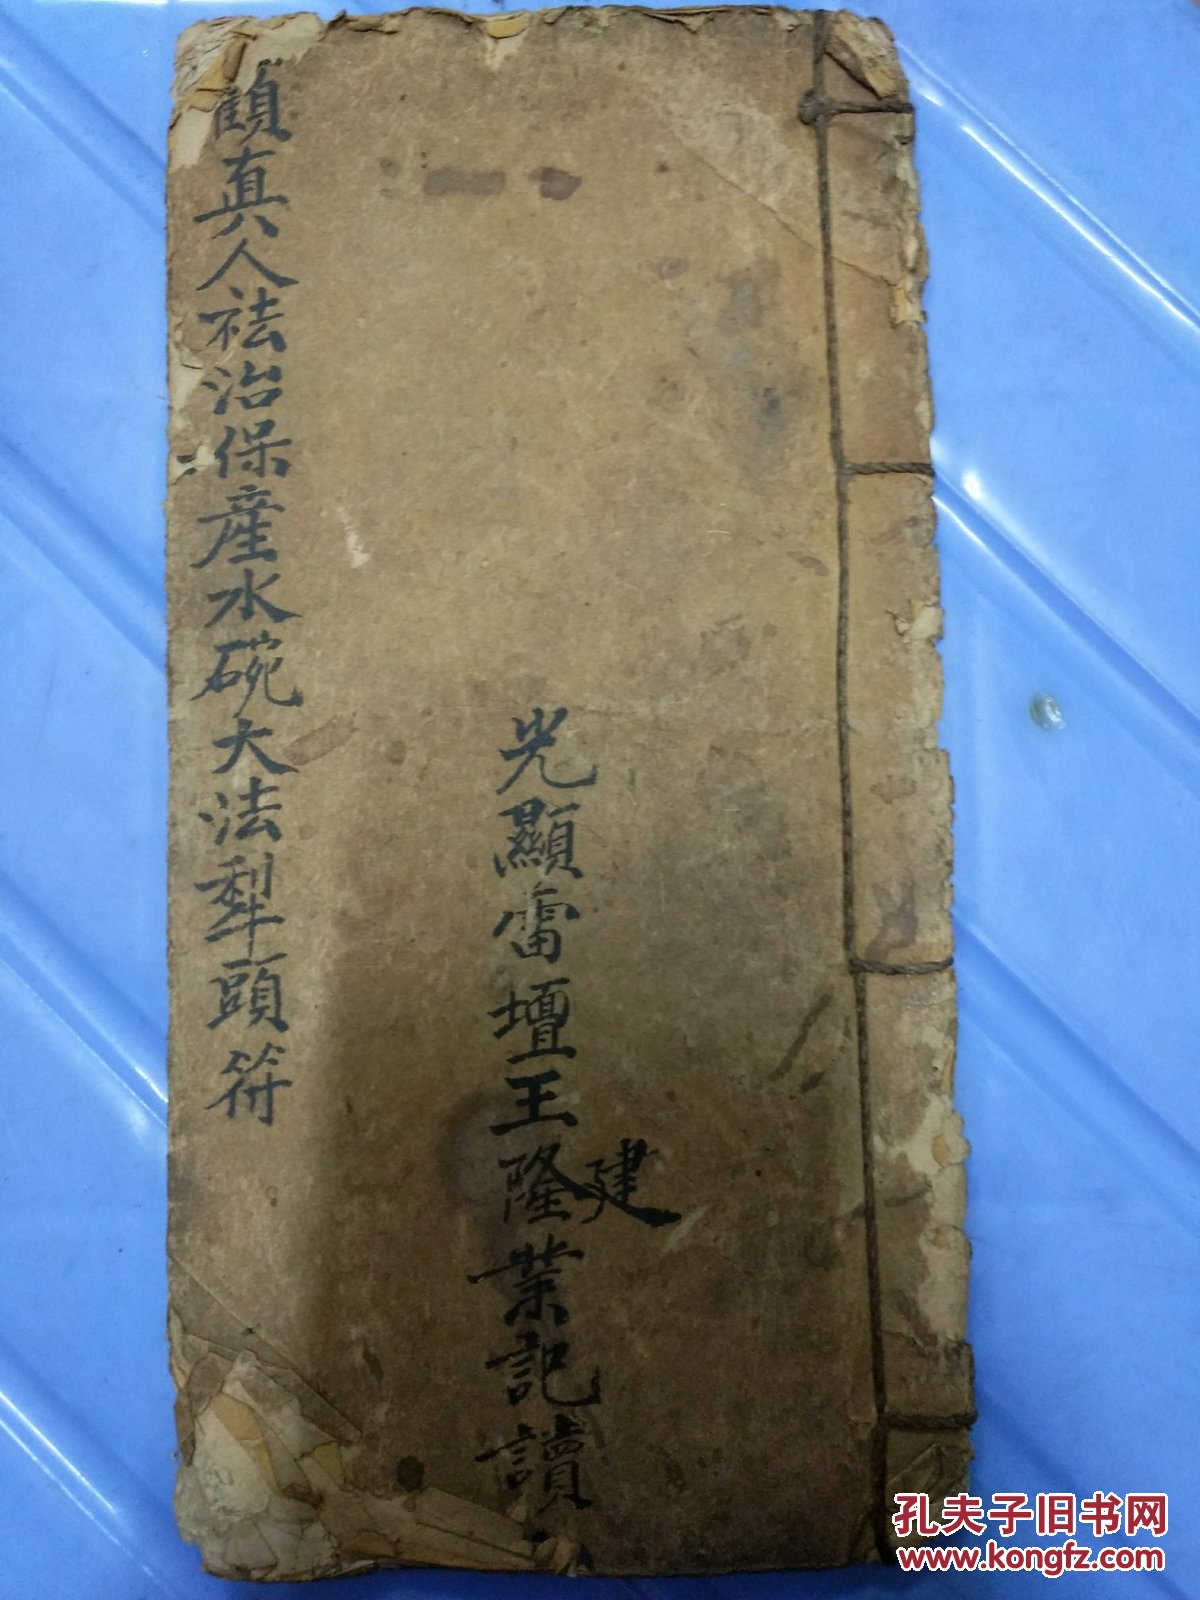 建
光顯雷壇王隆業記讀
顧真人祛治保產水碗大法犁頭符
孔夫子旧书网
www.kongfz.com